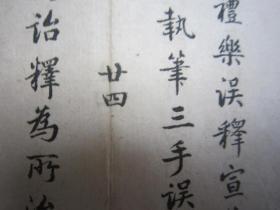 禮樂誤釋宣
執筆三手誤
廿四
詒釋為所治